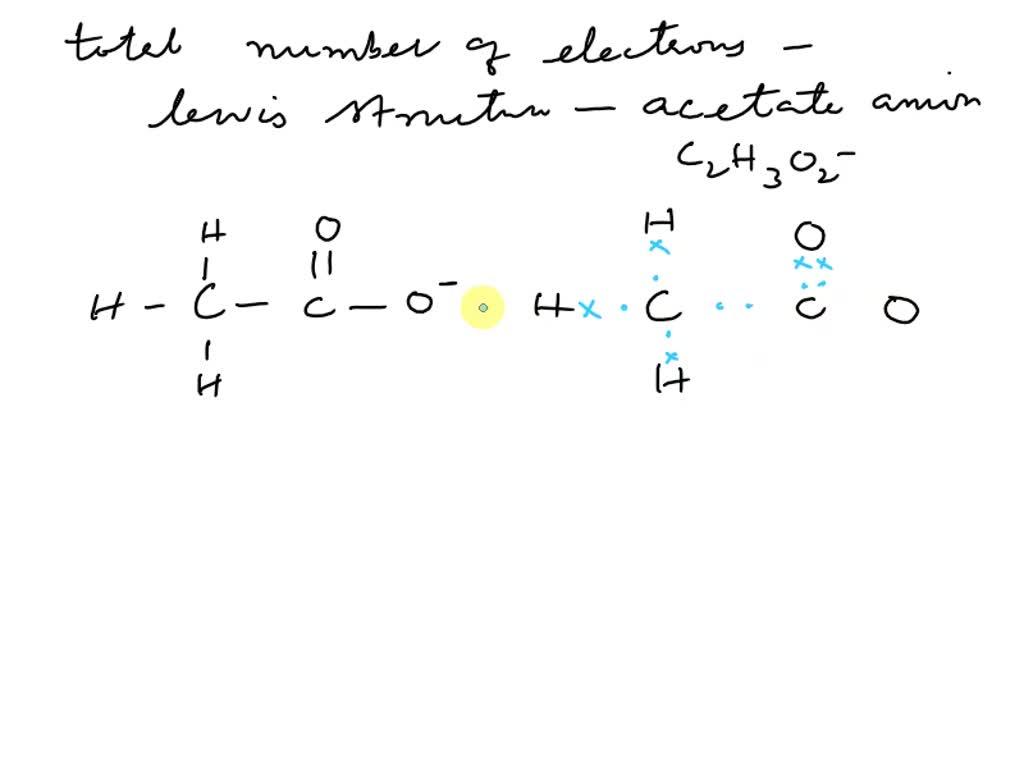 total number of electrons -
lewis structure - acetate anion
C2H3O2-
H O H O
H - C - C - O- H x . C . . C O
H H